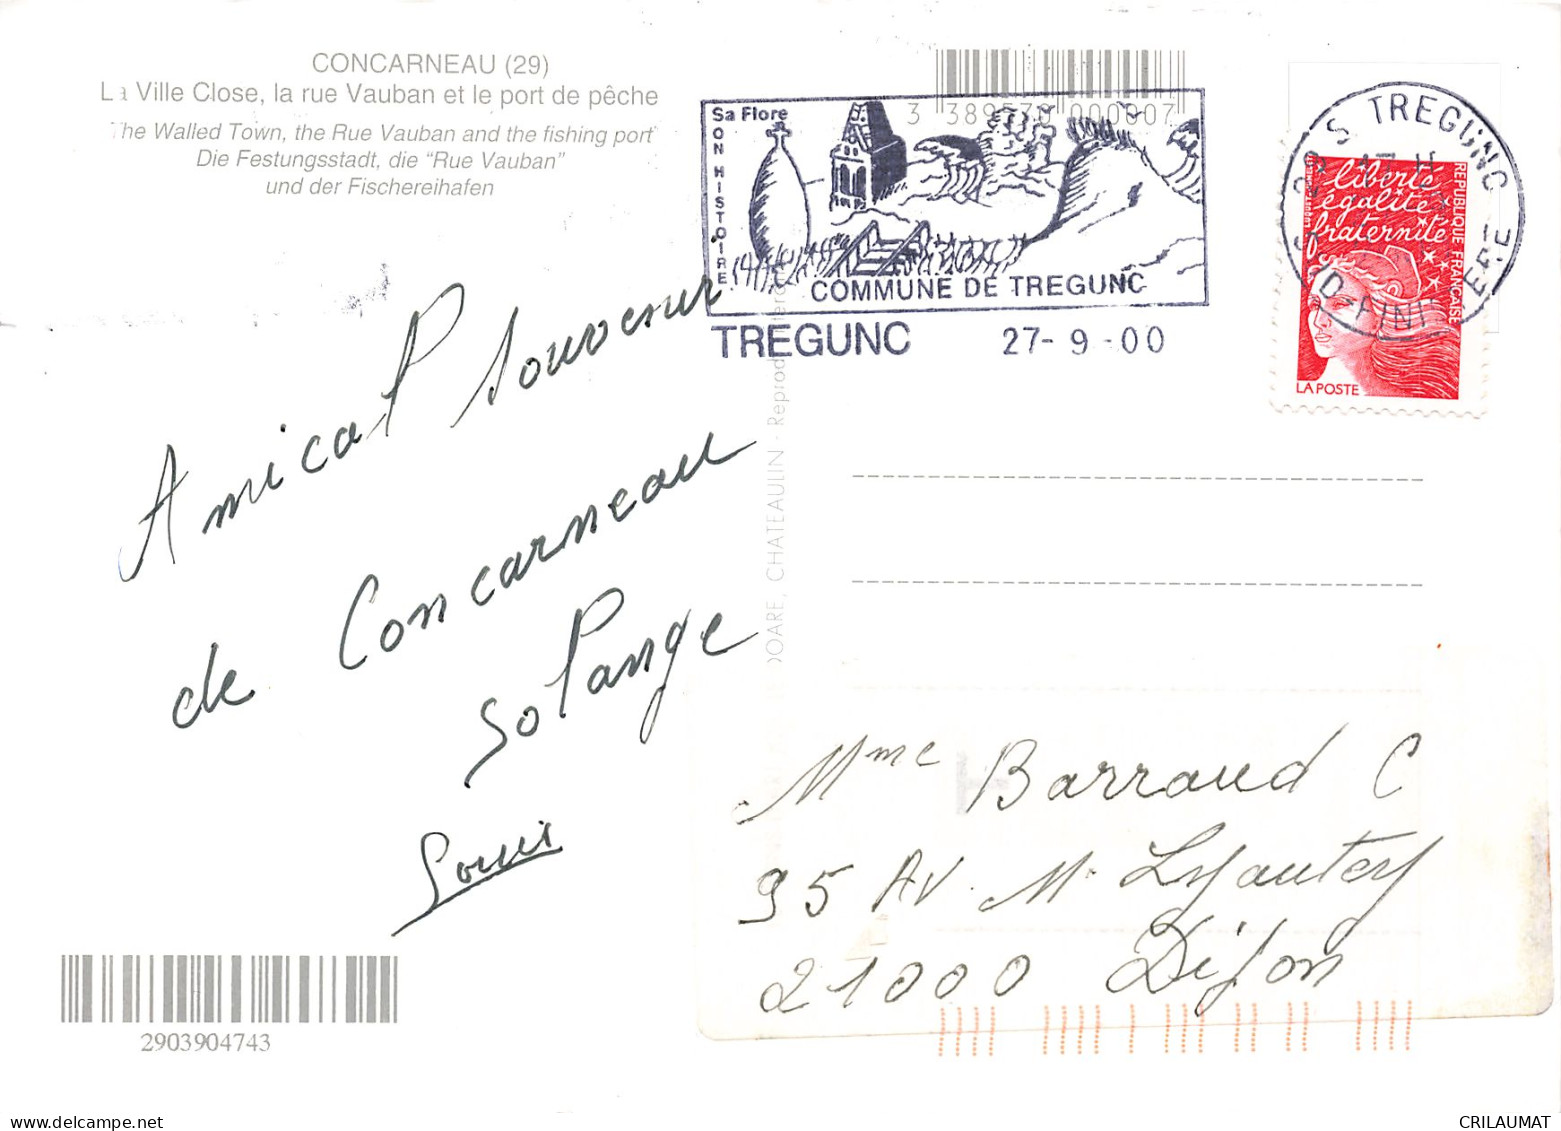 CONCARNEAU (29)
La Ville Close, la rue Vauban et le port de pêche
The Walled Town, the Rue Vauban and the fishing port
Die Festungsstadt, die "Rue Vauban"
und der Fischereihafen
3 389570 000007
Sa Flore
SON HISTOIRE
COMMUNE DE TREGUNC
TREGUNC 27-9-00
29 S TREGUNC
17 H
SUD-FINISTERE
liberté
égalité
fraternité
REPUBLIQUE FRANÇAISE
LA POSTE
Amical souvenir
de Concarneau
Solange
Louis
DOARE, CHATEAULIN - Reprod
Mme Barraud C
95 Av M. Lyautey
21000 Dijon
2903904743
CRILAUMAT